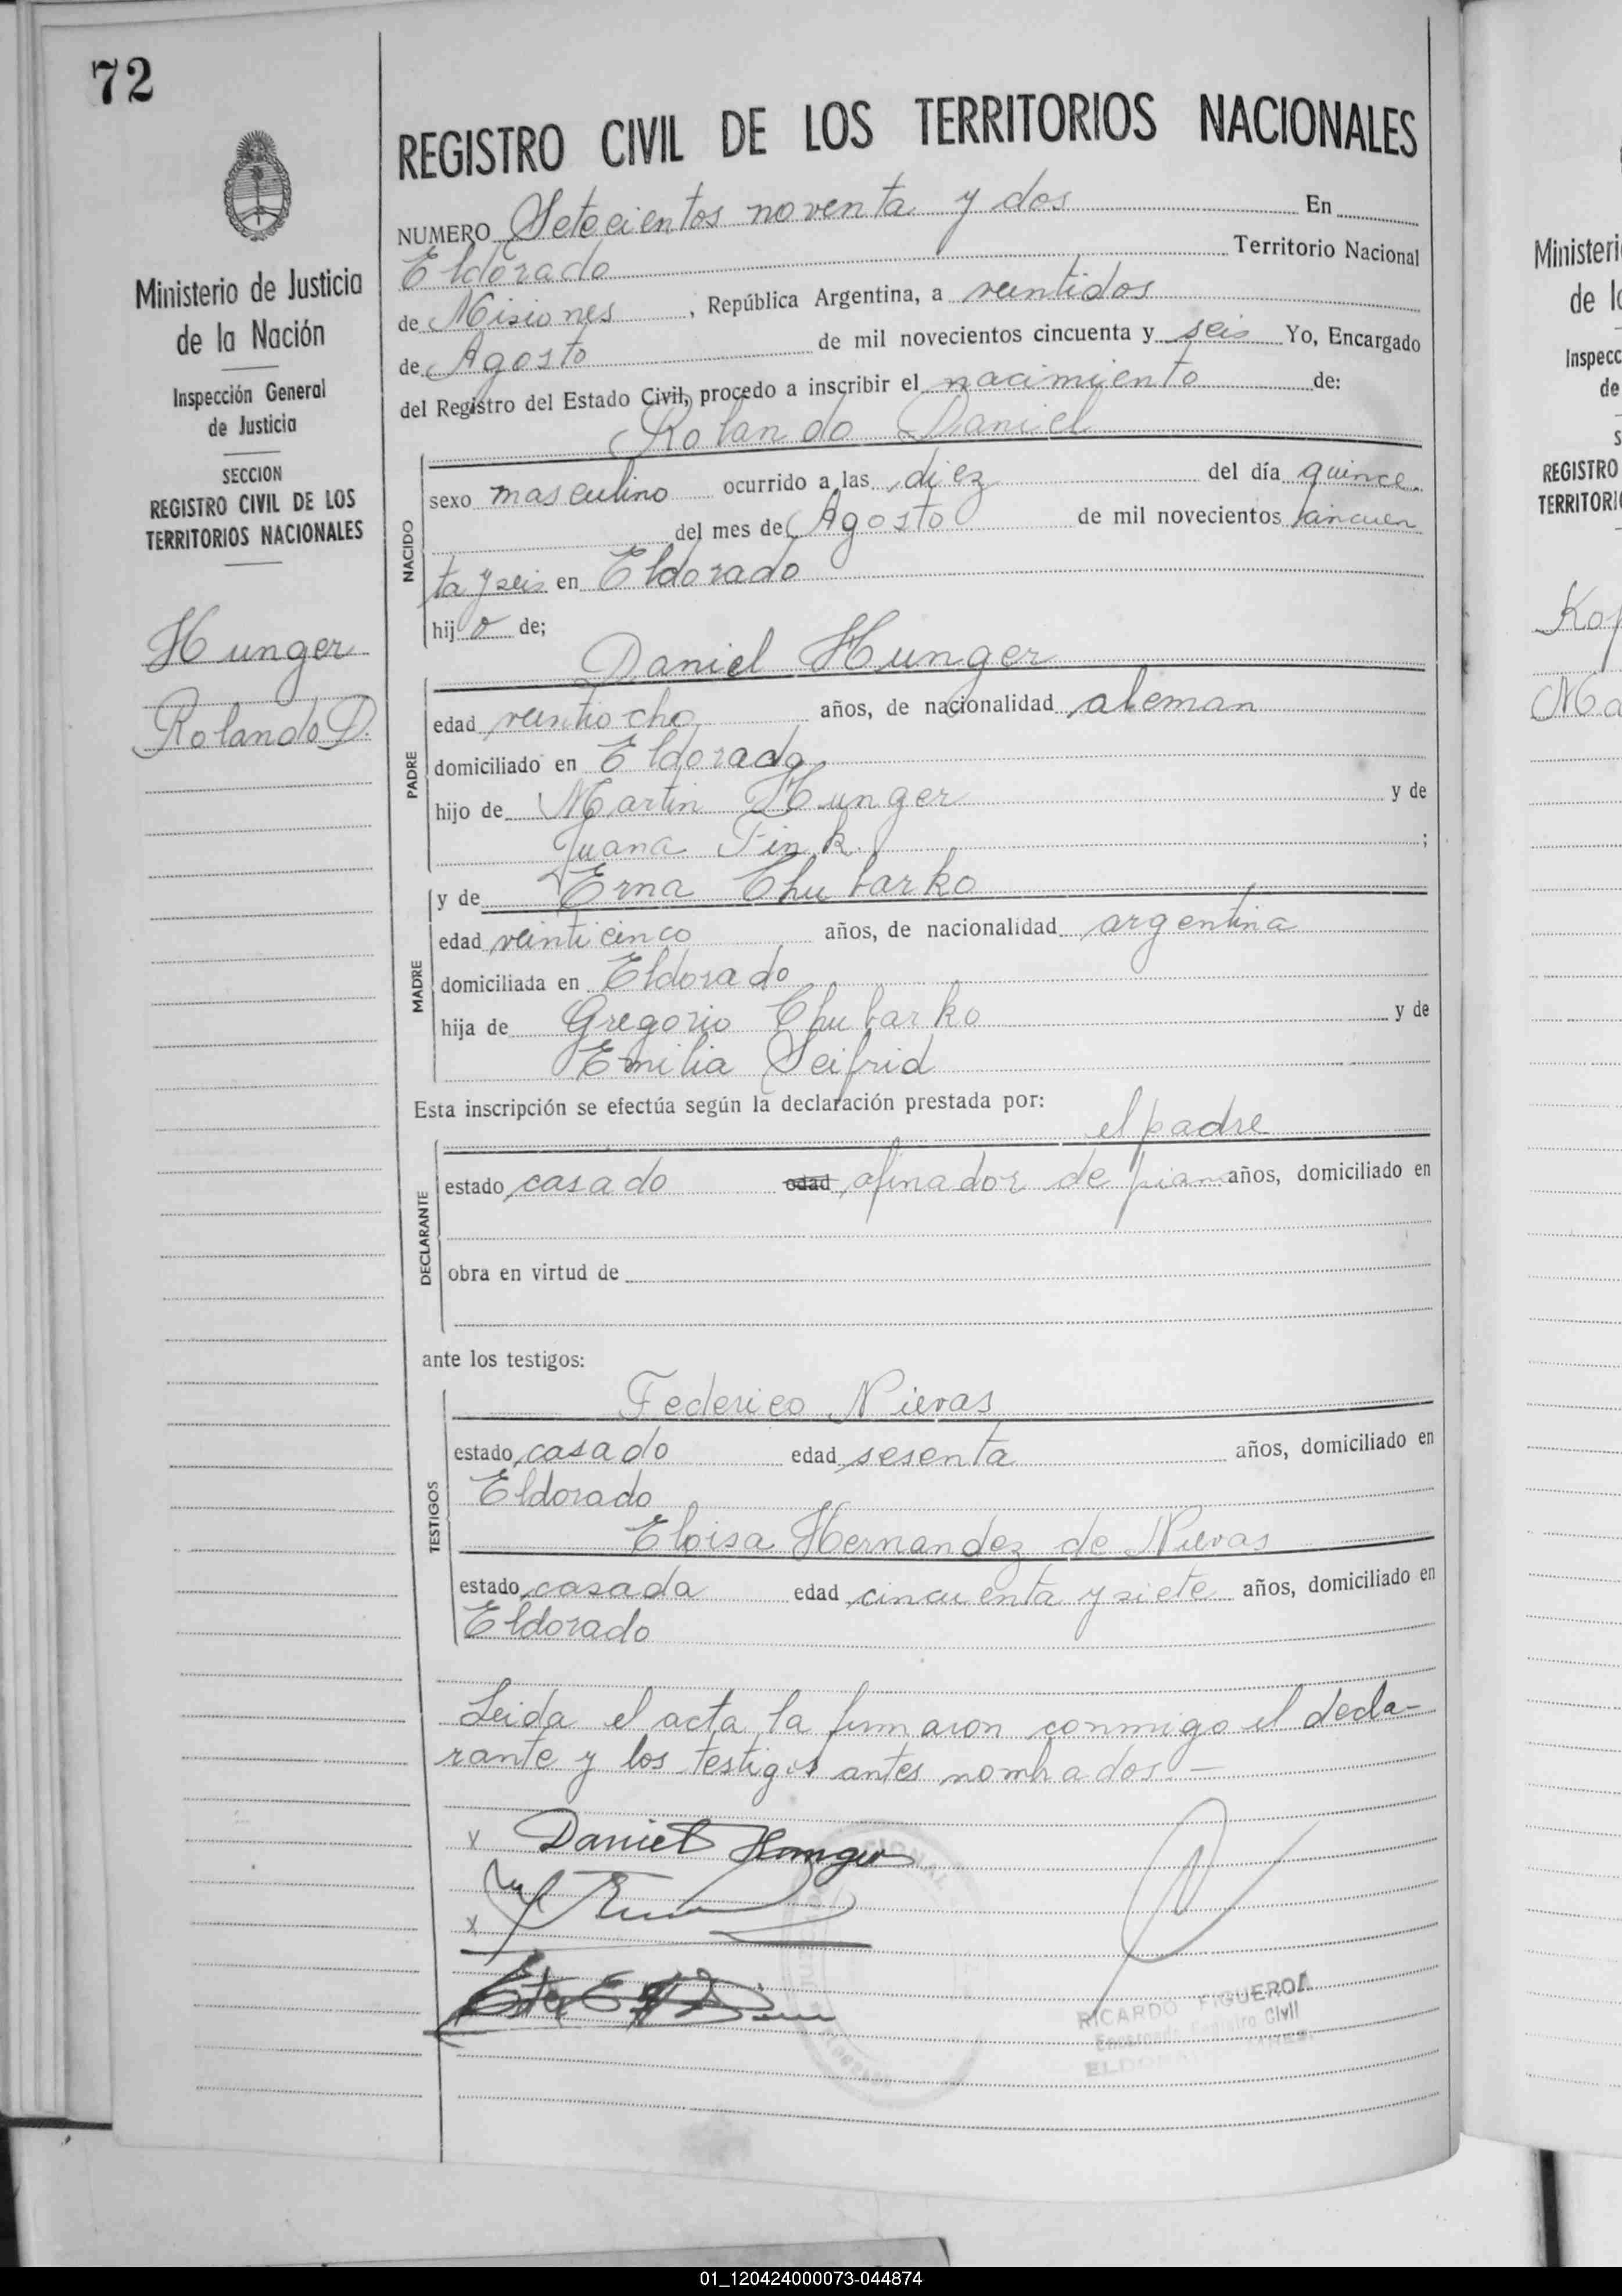 72
REGISTRO CIVIL DE LOS TERRITORIOS NACIONALES
Ministerio de Justicia
de la Nación
Inspección General
de Justicia
SECCION
REGISTRO CIVIL DE LOS
TERRITORIOS NACIONALES
Hunger
Rolando D.
NUMERO Setecientos noventa y dos En
Eldorado Territorio Nacional
de Misiones, República Argentina, a veintidos
de Agosto de mil novecientos cincuenta y seis Yo, Encargado
del Registro del Estado Civil, procedo a inscribir el nacimiento de:
Rolando Daniel
NACIDO
sexo masculino ocurrido a las diez del día quince
del mes de Agosto de mil novecientos cincuen
ta y seis en Eldorado
hijo de;
Daniel Hunger
PADRE
edad veintiocho años, de nacionalidad aleman
domiciliado en Eldorado
hijo de Martin Hunger y de
Juana Fink ;
y de Erna Chubarko
MADRE
edad veinticinco años, de nacionalidad argentina
domiciliada en Eldorado
hija de Gregorio Chubarko y de
Emilia Seifrid
Esta inscripción se efectúa según la declaración prestada por:
el padre
DECLARANTE
estado casado edad afinador de piano años, domiciliado en
obra en virtud de
ante los testigos:
TESTIGOS
Federico Nievas
estado casado edad sesenta años, domiciliado en
Eldorado
Eloisa Hernandez de Nievas
estado casada edad cincuenta y siete años, domiciliado en
Eldorado
Leida el acta la firmaron conmigo el decla-
rante y los testigos antes nombrados.-
x Daniel Hunger
x
RICARDO FIGUEROA
Encargado Registro Civil
Ministeri
de l
Inspecc
de
S
REGISTRO
TERRITORI
01_120424000073-044874